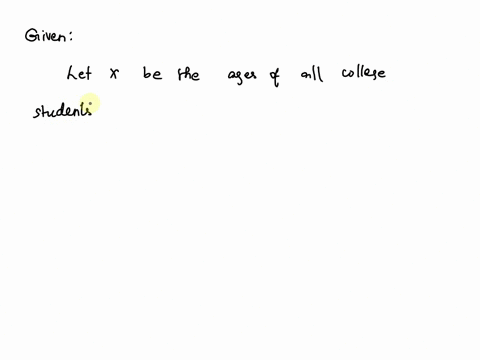 Given:
Let x be the ages of all college
students